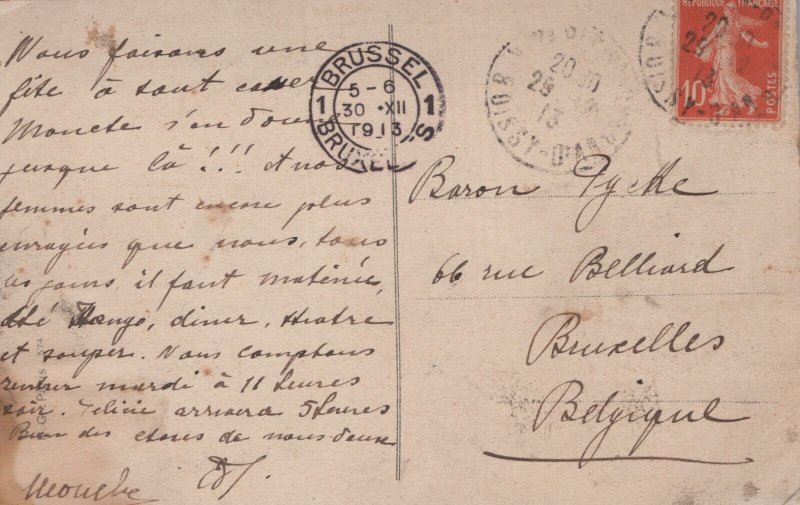 Nous faisons une
fête à tout casser
Moncte s'en donne
jusque là !!! et nos
femmes sont encore plus
enragées que nous, tous
les jours il faut matinée,
thé Tango, diner, theatre
et souper. Nous comptons
rentrer mardi à 11 heures
soir. Felicie arrivera 5 heures
Bien des choses de nous deux
BRUSSEL
5-6
1 30 XII 1
1913
BRUXELLES
20 30
29 12
13
BOISSY-D'ANGLAS
REPUBLIQUE FRANÇAISE
10
POSTES
Baron Tycke
66 rue Belliard
Bruxelles
Belgique